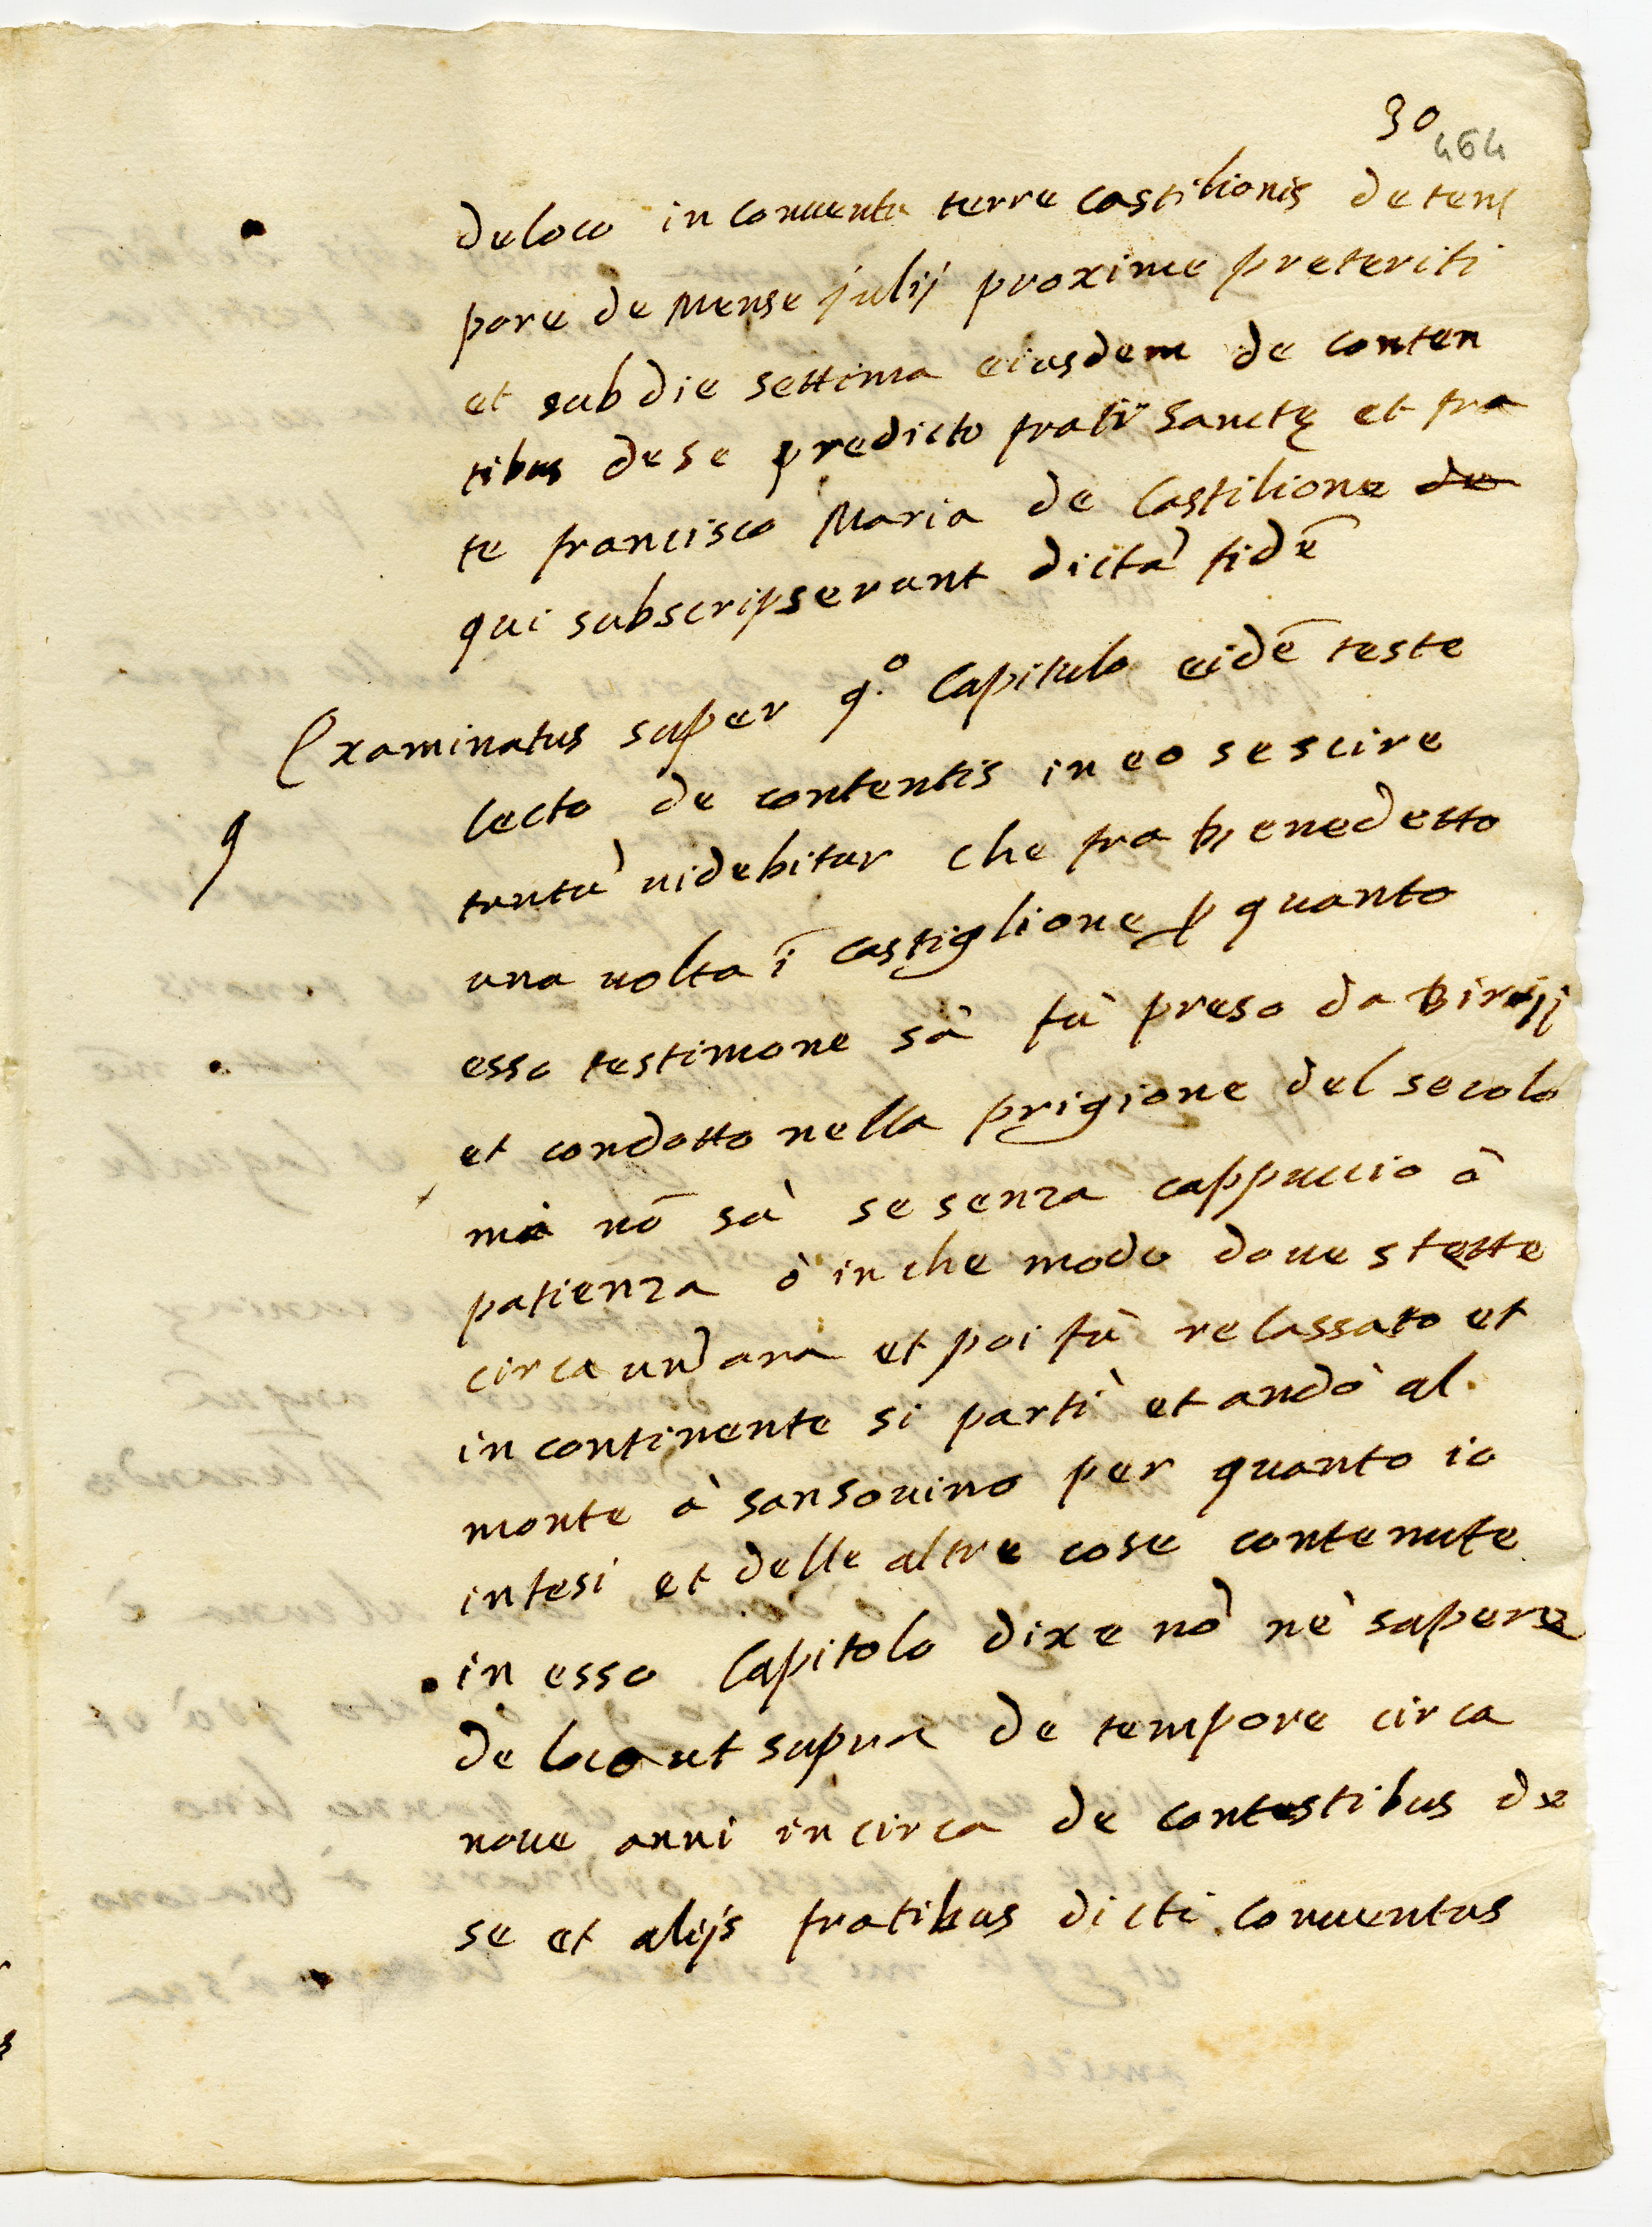 30
464
de loco in conuentu terre castilionis de tem
pore de Mense julij proxime preteriti
et sub die settima eiusdem de conten
tibus de se predicto frate Sanctę et fra
te francisco Maria de Castilione de
qui subscripserunt dictā fidē
Examinatus super 9.º Capitulo eidē teste
9
lecto de contentis in eo se scire
tantū uidebitur che fra benedetto
una uolta ī castiglione p quanto
esso testimone sà fù preso da Birrij
et condotto nella prigione del secolo
mà nō sà se senza cappuccio ò
patienza ò in che modo doue stette
circa un'ora et poi fù relassato et
incontinente si partì et andò al
monte à sansouino per quanto io
intesi et delle altre cose contenute
in esso Capitolo dixe nō nè sapere
de loco ut supra de tempore circa
noue anni in circa de contestibus de
se et alijs fratibus dicti conuentus